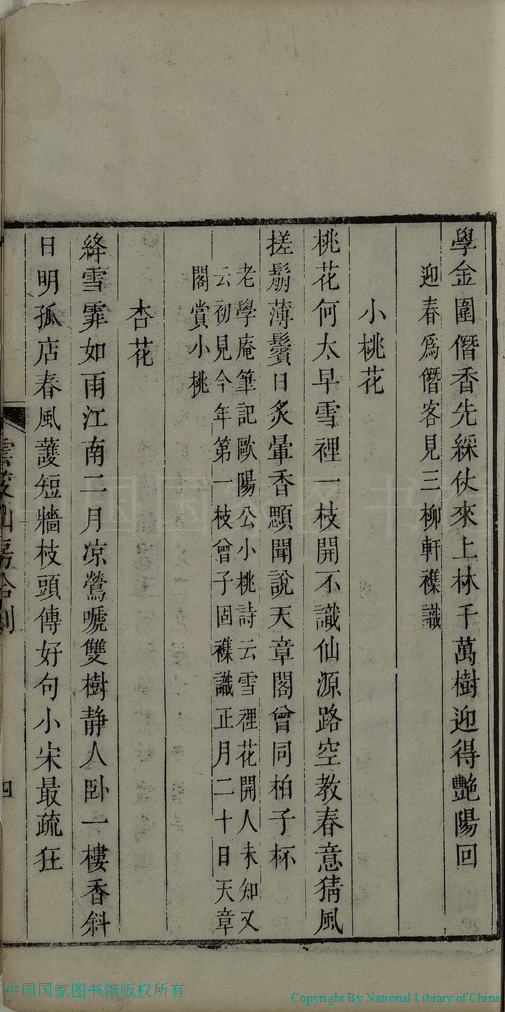 學金圍僭香先綵仗來上林千萬樹迎得艷陽回
迎春爲僭客見三柳軒襍識
小桃花
桃花何太早雪裡一枝開不識仙源路空教春意猜風
搓鬅薄鬢日炙暈香顋聞說天章閣曾同柏子杯
老學庵筆記歐陽公小桃詩云雪裡花開人未知又
云初見今年第一枝曾子固襍識正月二十日天章
閣賞小桃
杏花
絳雪霏如雨江南二月凉鶯嗁雙樹静人卧一樓香斜
日明孤店春風護短牆枝頭傳好句小宋最疏狂
四
中国国家图书馆版权所有
Copyright By National Library of China